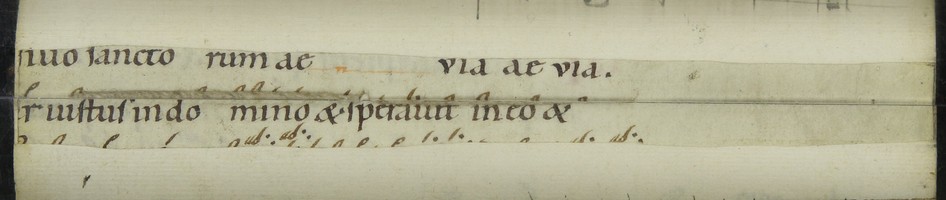 suo sancto rum ae via ae via.
r iustus in do mino & speravit in eo &